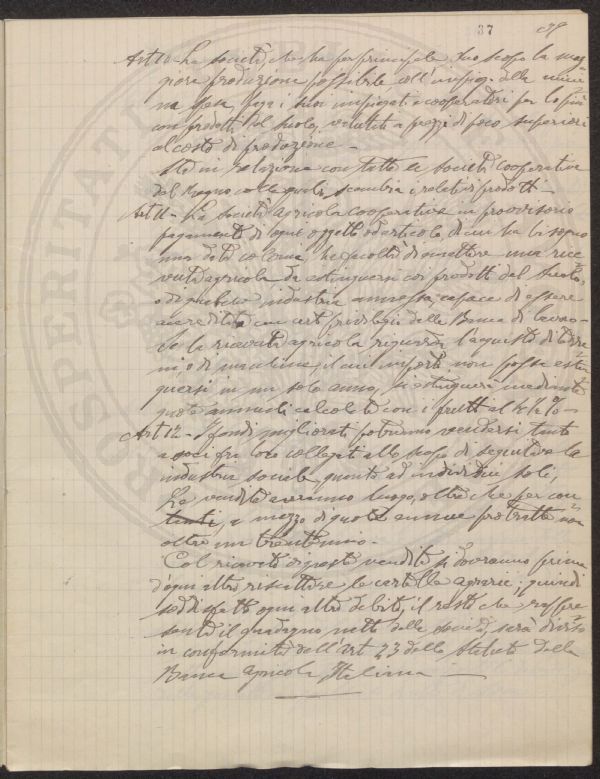 37
Art 10 - La società, che ha per principale suo scopo la mag-
giore produzione possibile all'infuori della
spesa, paga i suoi impiegati e cooperatori per lo più
con prodotti del suolo, valutati a prezzi di poco superiori
al costo di produzione -
Sta in relazione con tutte le Società Cooperative
del Regno colle quali scambia i relativi prodotti -
Art 11 - La Società Agricola cooperativa in provvisorio
pagamento di ogni oggetto od articolo, di cui ha bisogno
una data colonia, ha facoltà di emettere una rice
vuta agricola da estinguersi coi prodotti del suolo,
o di qualche industria annessa, capace di essere
accreditata con cert privilegio dalla Banca di lavoro -
Se la ricevuta agricola riguarda l'acquisto di terre
ni, o di macchine, il cui importo non possa estin
guersi in un solo anno, si estinguerà mediante
quote annuali calcolate con i frutti al 4 ½ % -
Art 12 - I fondi migliorati potranno vendersi tanto
a soci fra loro collegati allo scopo di seguitare la
industria sociale quanto ad individui soli,
Le vendite avranno luogo, oltre che per con
tanti, a mezzo di quote annue protratte non
oltre un trentennio -
Col ricavato di queste vendite si dovranno prima
d'ogni altro riscattare le cartelle agrarie; quindi
soddisfatto ogni altro debito, il resto che rappre
senta il guadagno netto della società, sarà diviso
in conformità dell'art 23 dello Statuto della
Banca Agricola Italiana -